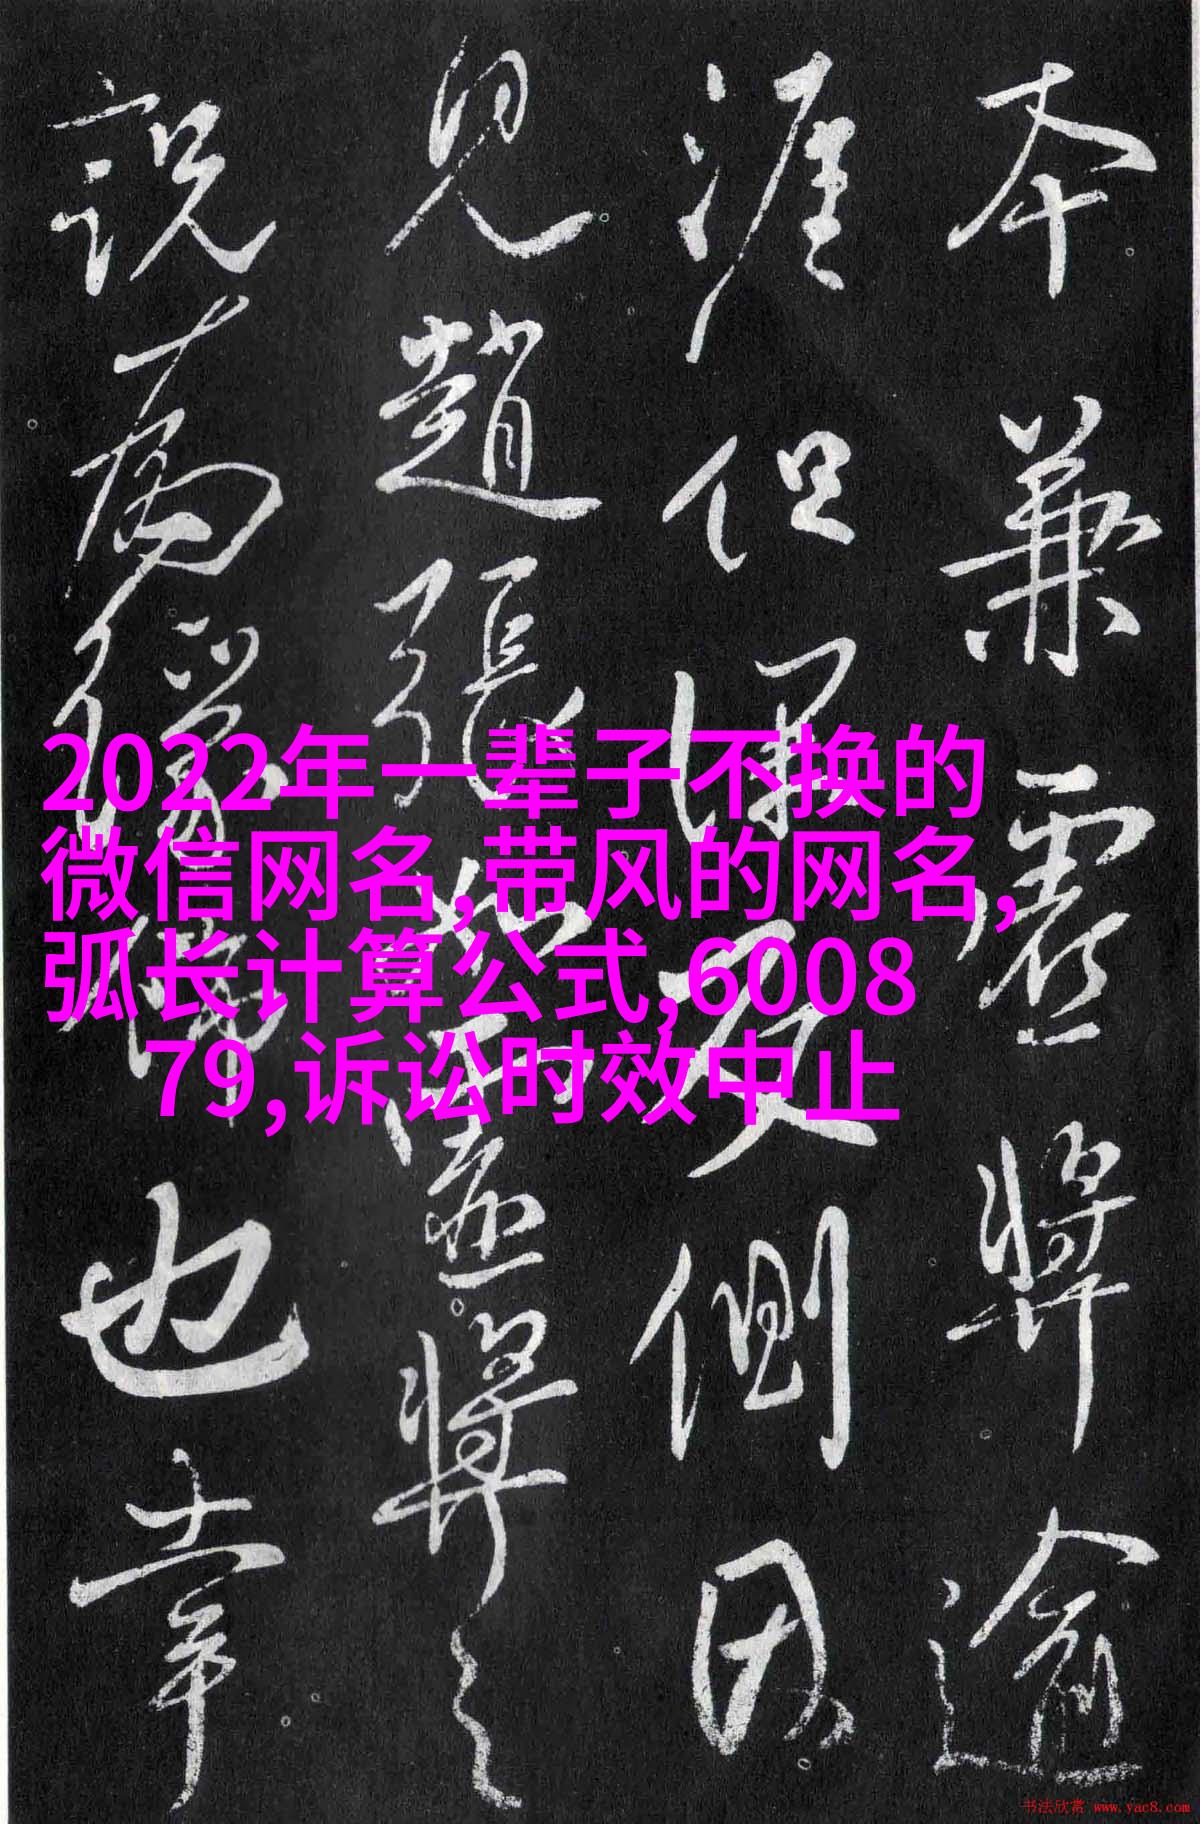 本兼將逾
涯但深反側因
見趙張將之
說也章
2022年一辈子不换的
微信网名,带风的网名,
弧长计算公式,6008
79,诉讼时效中止
书法欣赏 www.yac8.com